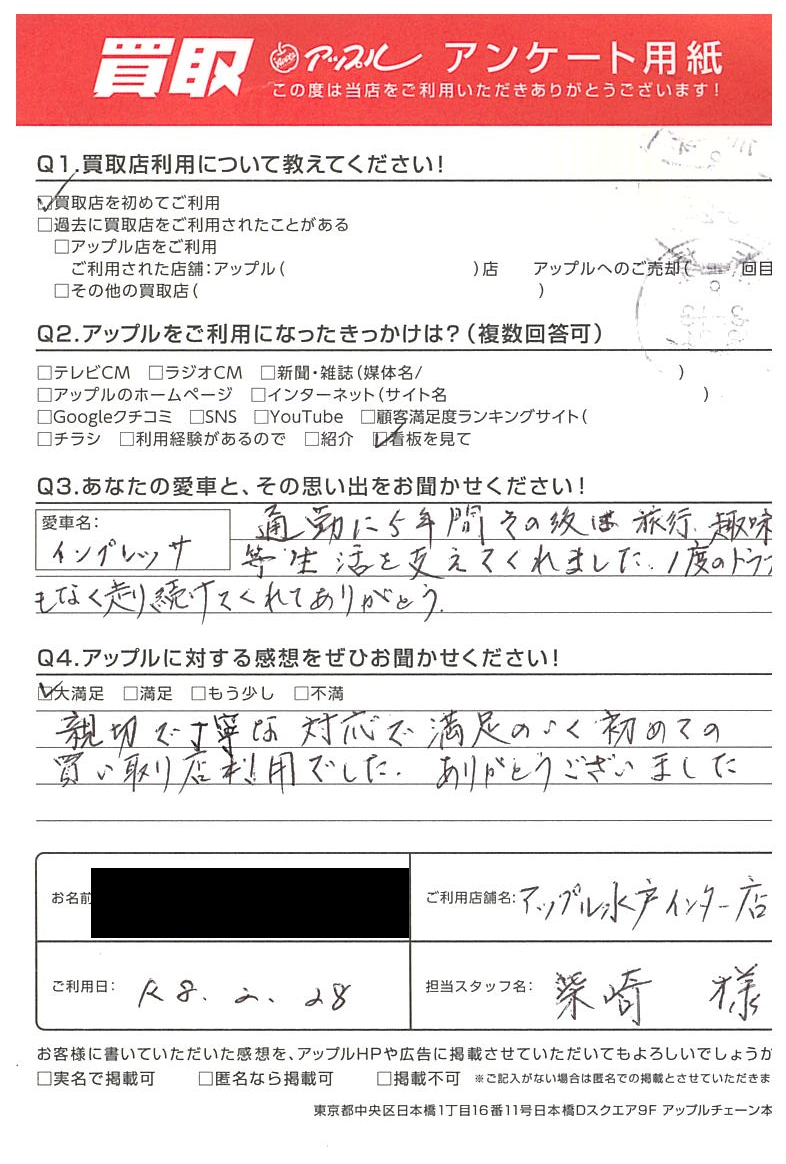 買取 アップル アンケート用紙
この度は当店をご利用いただきありがとうございます!
Q1.買取店利用について教えてください!
☑買取店を初めてご利用
□過去に買取店をご利用されたことがある
□アップル店をご利用
ご利用された店舗:アップル( )店 アップルへのご売却( 回目
□その他の買取店( )
Q2.アップルをご利用になったきっかけは?(複数回答可)
□テレビCM □ラジオCM □新聞・雑誌(媒体名/ )
□アップルのホームページ □インターネット(サイト名 )
□Googleクチコミ □SNS □YouTube □顧客満足度ランキングサイト(
□チラシ □利用経験があるので □紹介 ☑看板を見て
Q3.あなたの愛車と、その思い出をお聞かせください!
愛車名: インプレッサ
通勤に5年間その後は旅行、趣味
等生活を支えてくれました。1度のトラブ
もなく走り続けてくれてありがとう。
Q4.アップルに対する感想をぜひお聞かせください!
☑大満足 □満足 □もう少し □不満
親切で丁寧な対応で満足のいく初めての
買い取り店利用でした。ありがとうございました
お名前
ご利用店舗名:アップル水戸インター店
ご利用日: R8.2.28
担当スタッフ名: 柴崎 様
お客様に書いていただいた感想を、アップルHPや広告に掲載させていただいてもよろしいでしょうか
□実名で掲載可 □匿名なら掲載可 □掲載不可 ※ご記入がない場合は匿名での掲載とさせていただきま
東京都中央区日本橋1丁目16番11号日本橋Dスクエア9F アップルチェーン本